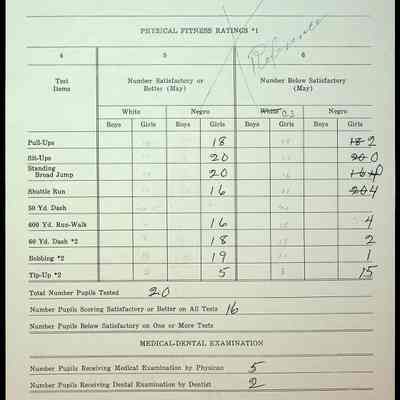 PHYSICAL FITNESS RATINGS *1
Reference
4 5 6
Test Items Number Satisfactory or Better (May) Number Below Satisfactory (May)
White Negro White Negro
Boys Girls Boys Girls Boys Girls Boys Girls
Pull-Ups 18 18 2
Sit-Ups 20 20 0
Standing Broad Jump 20 0
Shuttle Run 16 20 4
50 Yd. Dash
600 Yd. Run-Walk 16 4
60 Yd. Dash *2 18 2
Bobbing *2 19 1
Tip-Up *2 5 15
Total Number Pupils Tested 20
Number Pupils Scoring Satisfactory or Better on All Tests 16
Number Pupils Below Satisfactory on One or More Tests
MEDICAL-DENTAL EXAMINATION
Number Pupils Receiving Medical Examination by Physican 5
Number Pupils Receiving Dental Examination by Dentist 2